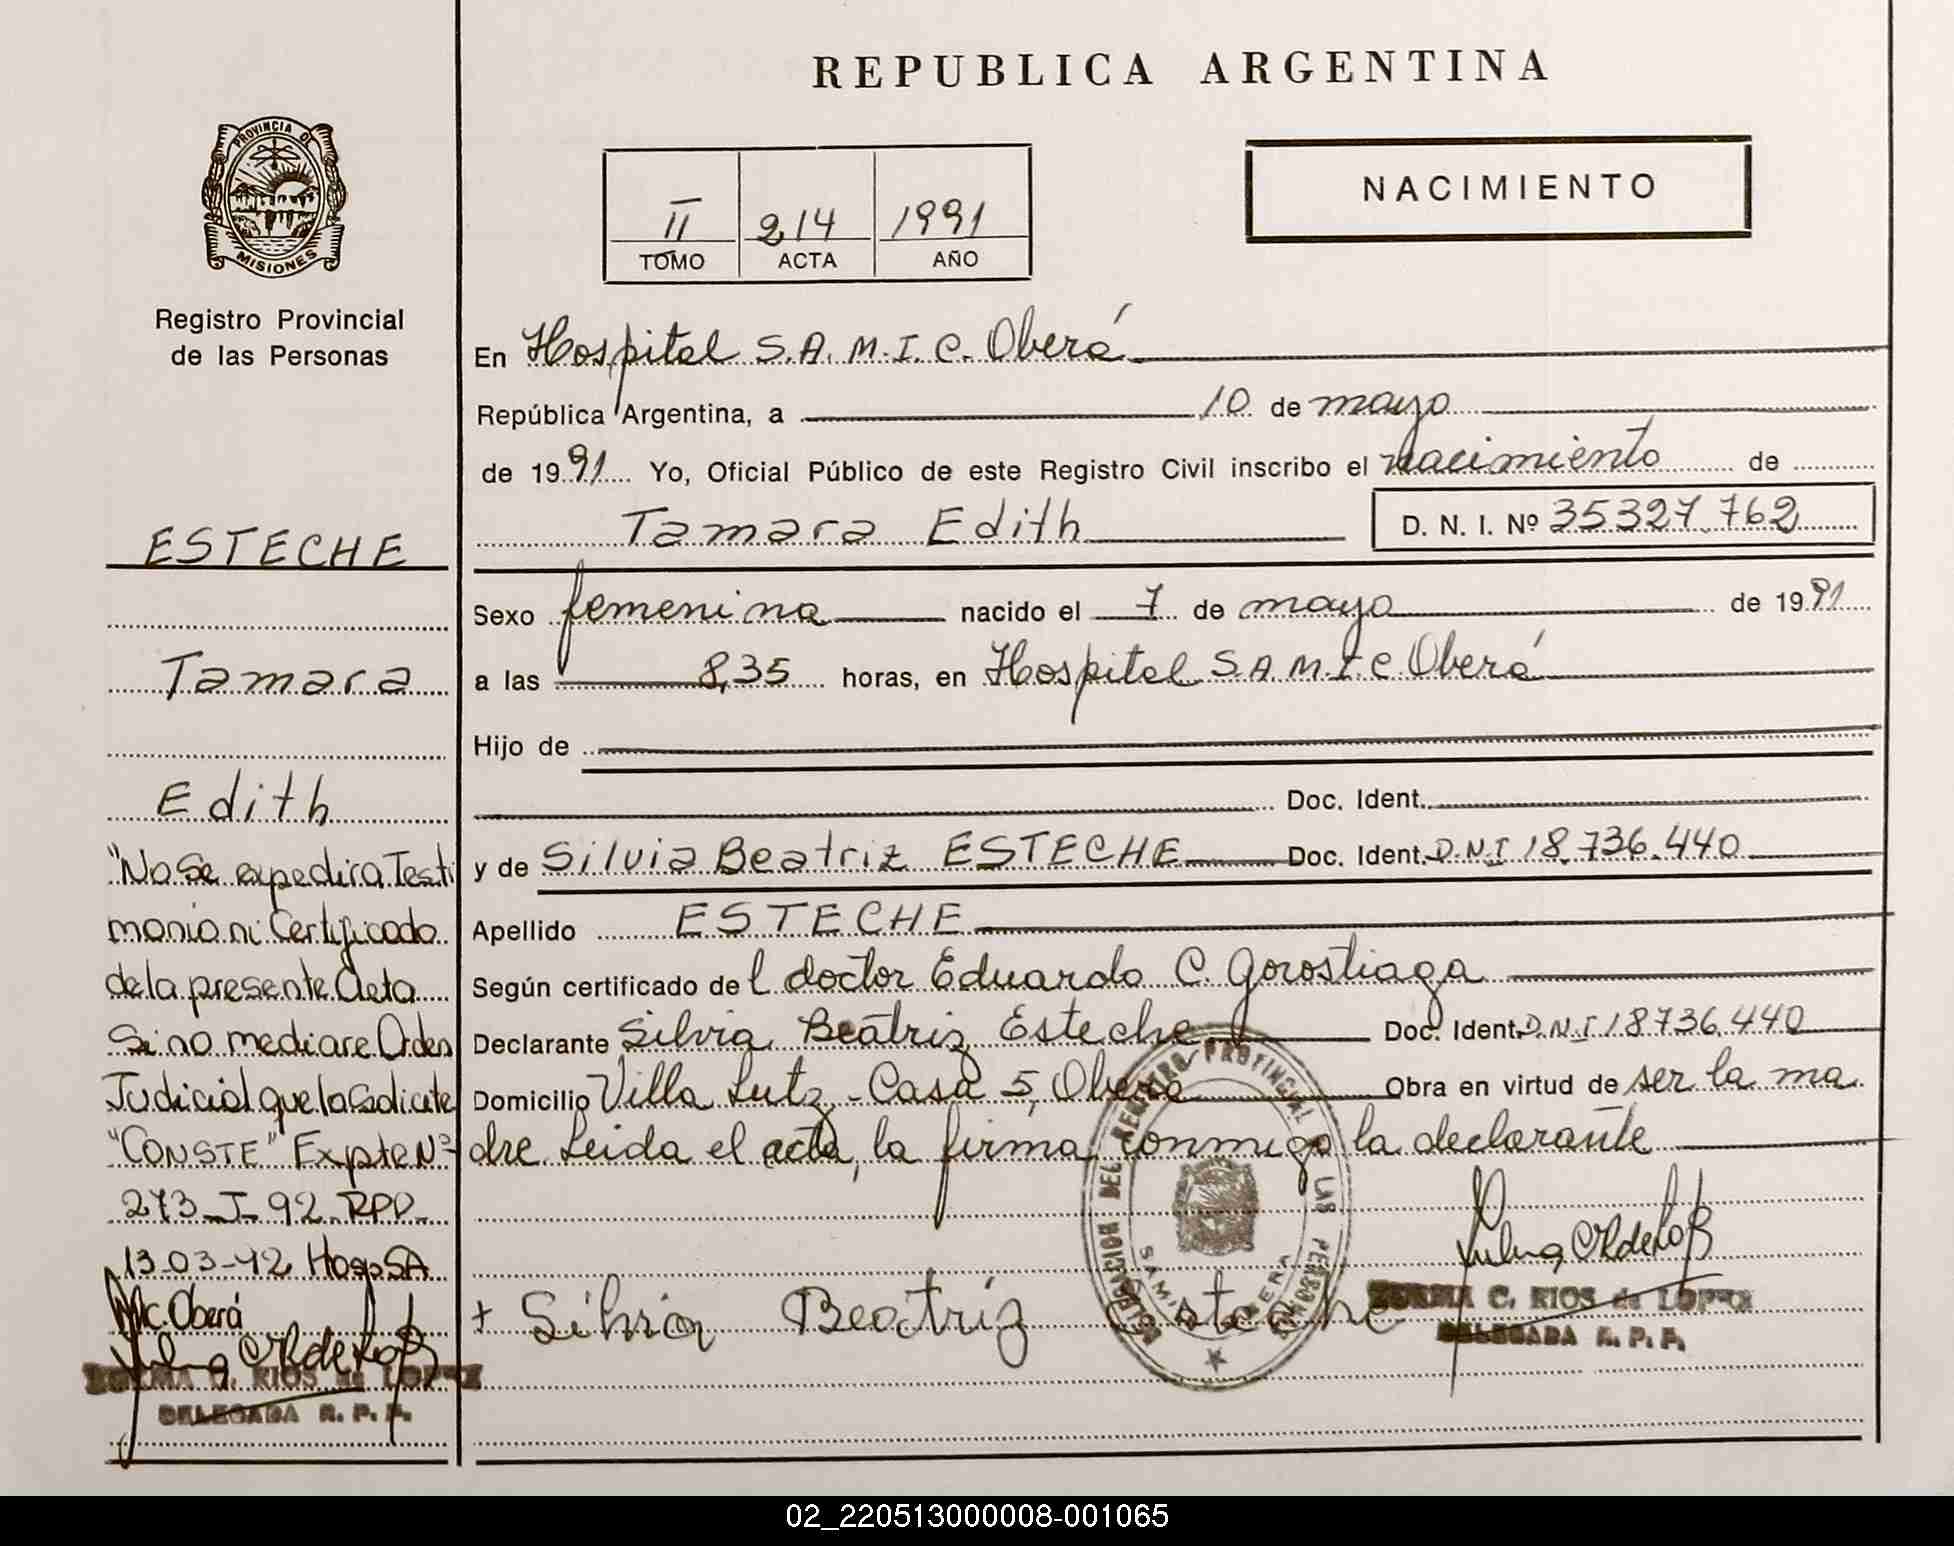 REPUBLICA ARGENTINA
PROVINCIA DE
MISIONES
Registro Provincial
de las Personas
II 214 1991
TOMO ACTA AÑO
NACIMIENTO
En Hospital S.A.M.I.C. Oberá
República Argentina, a 10 de mayo
de 1991 Yo, Oficial Público de este Registro Civil inscribo el nacimiento de
Tamara Edith D. N. I. Nº 35327.762
Sexo femenina nacido el 7 de mayo de 1991
a las 8,35 horas, en Hospital S.A.M.I.C. Oberá
Hijo de
Doc. Ident.
y de Silvia Beatriz ESTECHE Doc. Ident. D.N.I 18.736.440
Apellido ESTECHE
Según certificado del doctor Eduardo C. Gorostiaga
Declarante Silvia Beatriz Esteche Doc. Ident. D.N.I 18736.440
Domicilio Villa Lutz - Casa 5, Oberá Obra en virtud de ser la ma
dre Leida el acta, la firma conmigo la declarante
+ Silvia Beatriz Esteche
C. RIOS de LOPEZ
DELEGADA R. P. P.
DELEGACION DEL REGISTRO PROVINCIAL DE LAS PERSONAS
ESTECHE
Tamara
Edith
"No Se expedira Testi
monio ni Certificado
de la presente Acta
Si no mediare Orden
Judicial que la solicite
"CONSTE" Expte Nº
273-I-92 RPP.
13-03-92 Hosp SA
Mic. Oberá
C. RIOS de LOPEZ
DELEGADA R. P. P.
02_220513000008-001065